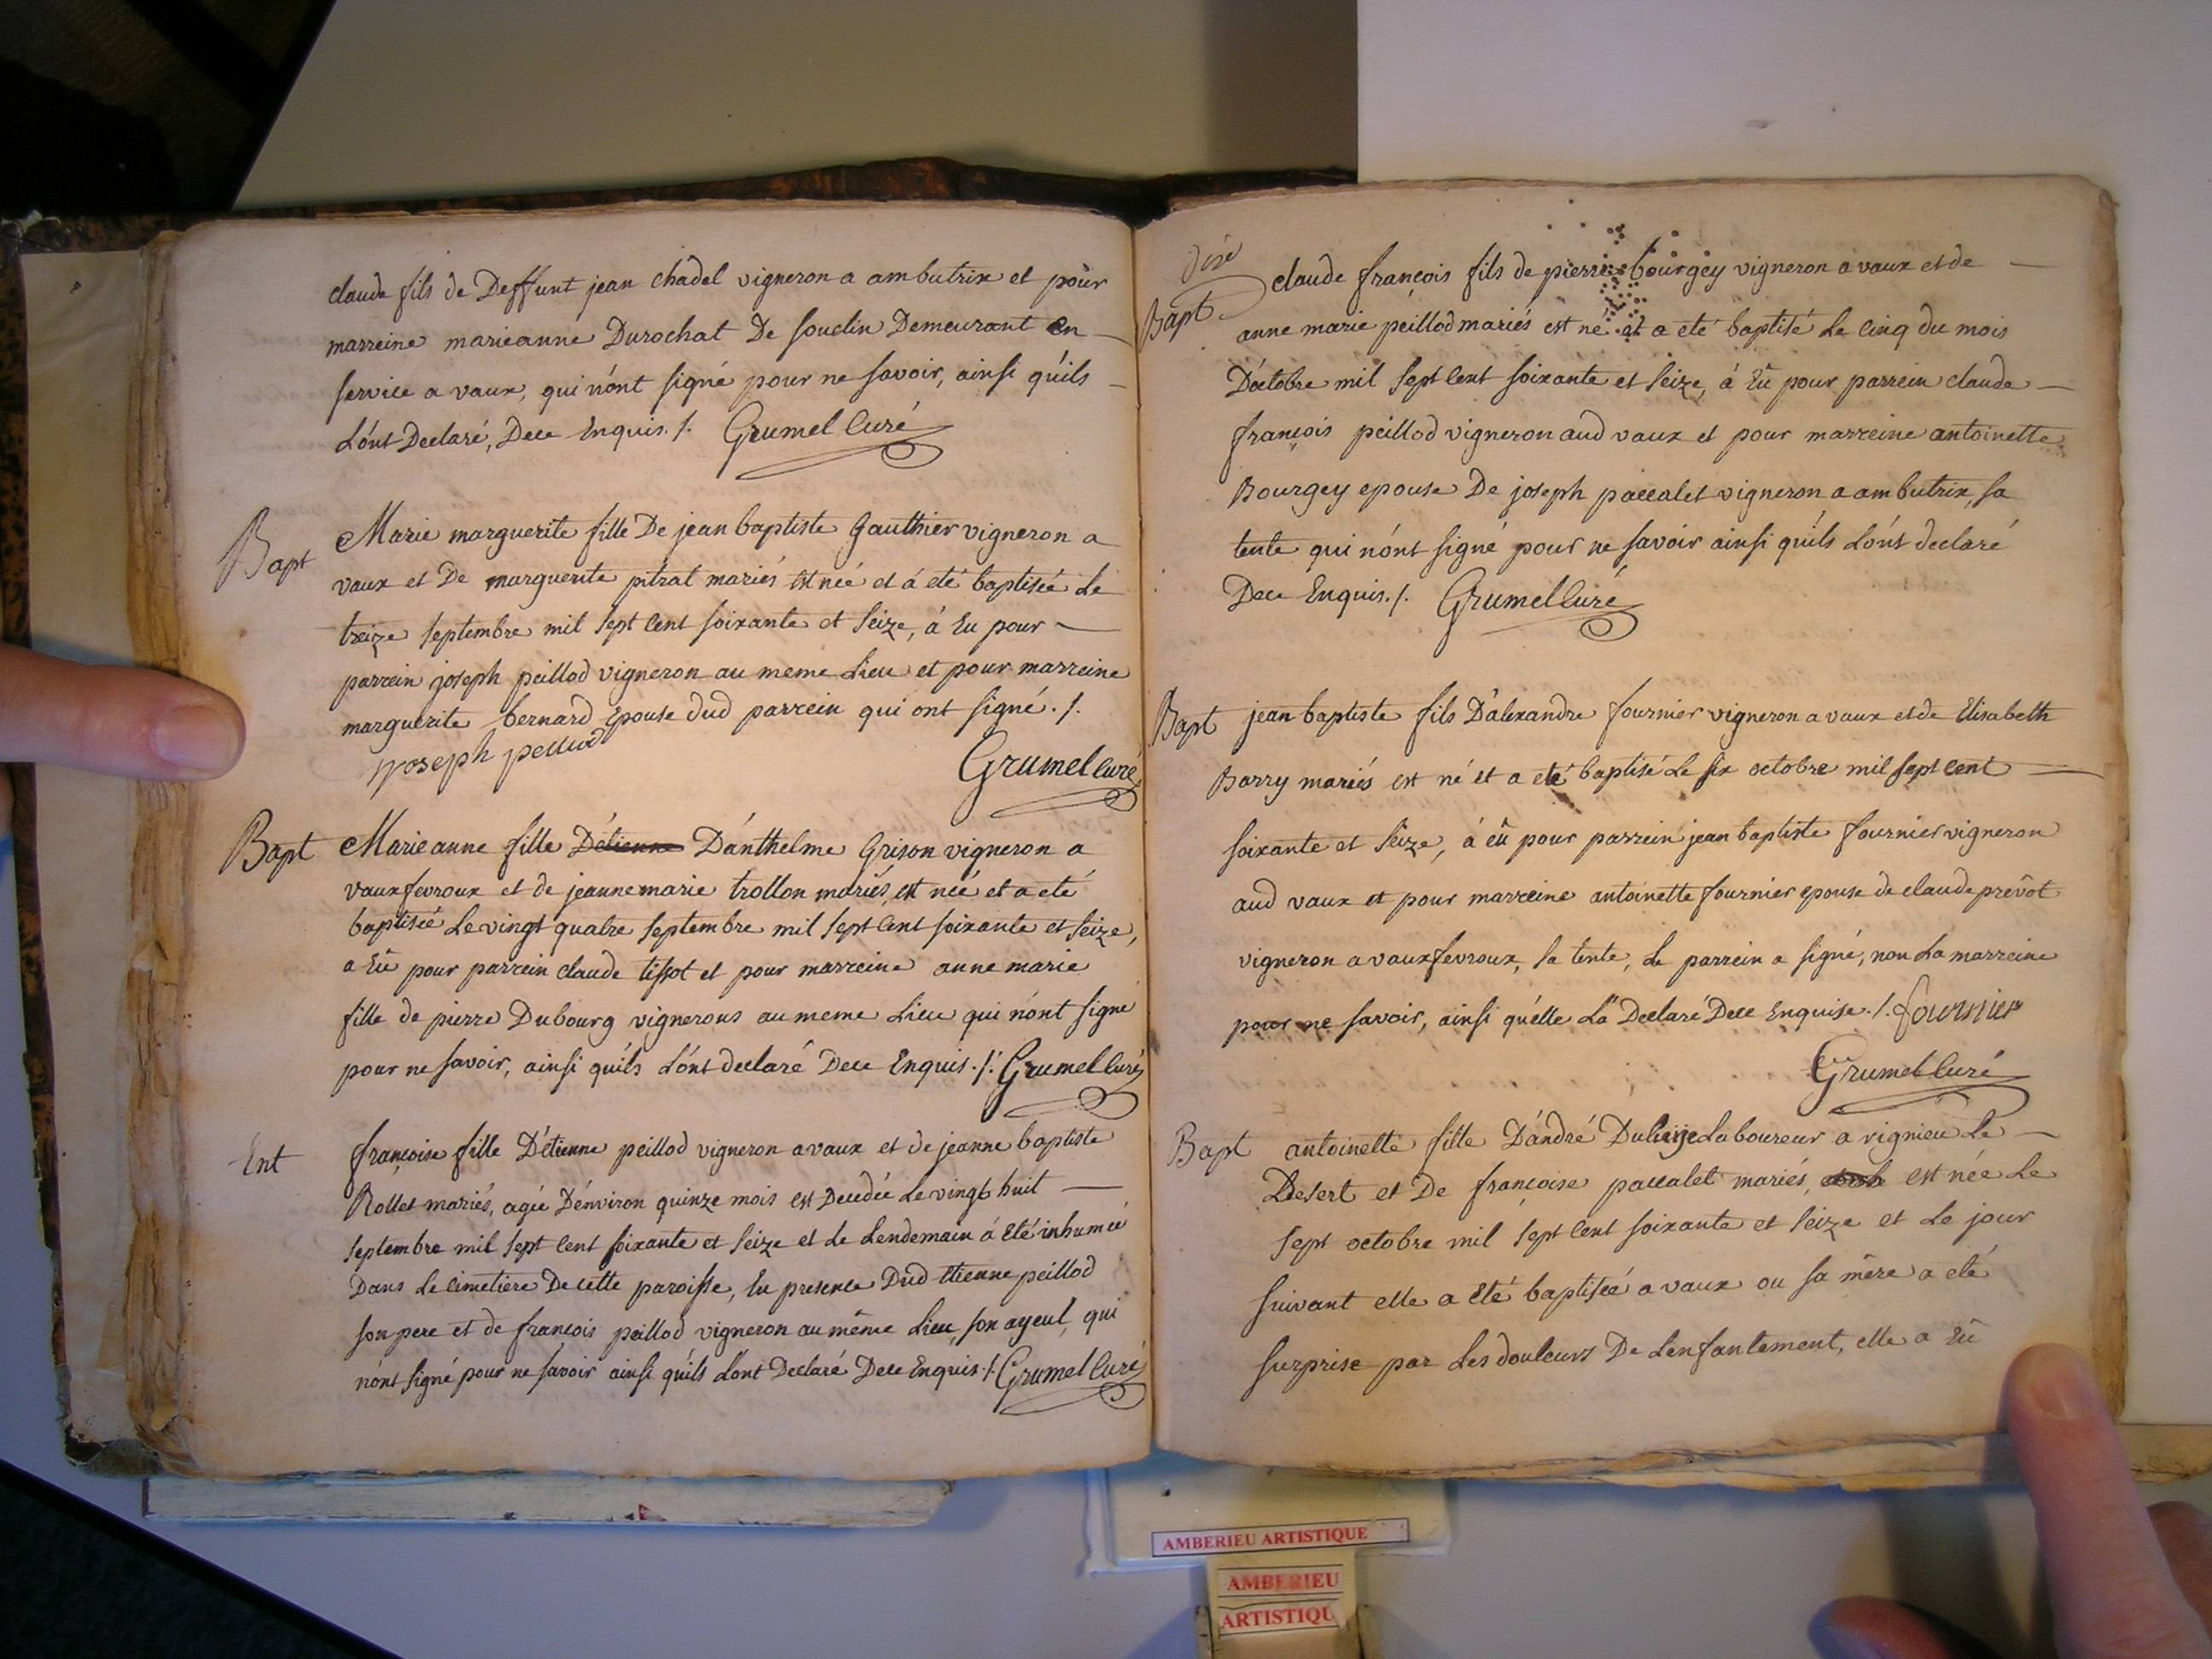 claude fils de Deffunt jean chadel vigneron a ambutrix et pour
marreine marieanne Durochat De souclin Demeurant en
service a vaux, qui n'ont signé pour ne savoir, ainsi qu'ils
L'ont Declaré, Dece Enquis ./. Grumel Curé
Bapt Marie marguerite fille De jean baptiste Gauthier vigneron a
vaux et De marguerite pitrat mariés est née et á eté baptisée Le
treize septembre mil sept Cent soixante et seize, á Eu pour
parrein joseph peillod vigneron au meme Lieu et pour marreine
marguerite bernard Epouse dud parrein qui ont signé ./.
joseph peillod
Grumel curé
Bapt Marie anne fille D'etienne D'anthelme Grison vigneron a
vauxfevroux et de jeanne marie trollon mariés, est née et a eté
baptisée Le vingt quatre septembre mil sept Cent soixante et seize,
a Eû pour parrein claude tissot et pour marreine anne marie
fille de pierre Dubourg vignerons au meme Lieu qui n'ont signé
pour ne savoir, ainsi qu'ils L'ont declaré Dece Enquis ./. Grumel Curé
Ent françoise fille D'etienne peillod vigneron a vaux et de jeanne baptiste
Rollet mariés, agée D'environ quinze mois est Decedée Le vingt huit
septembre mil sept Cent soixante et seize et Le Lendemain á Eté inhumée
Dans Le cimetiere De cette paroisse, En presence Dud Etienne peillod
son pere et de francois peillod vigneron au même Lieu, son ayeul, qui
n'ont signé pour ne savoir ainsi qu'ils L'ont Declaré Dece Enquis ./. Grumel Curé
Bapt claude françois fils de pierre bourgey vigneron a vaux et de
anne marie peillod mariés est né et a eté baptisé Le Cinq du mois
D'octobre mil sept Cent soixante et seize, á Eû pour parrein claude
françois peillod vigneron aud vaux et pour marreine antoinette
Bourgey epouse De joseph paccalet vigneron a ambutrix, sa
tente qui n'ont signé pour ne savoir ainsi qu'ils L'ont declaré
Dece Enquis ./. Grumel Curé
Bapt jean baptiste fils D'alexandre fournier vigneron a vaux et de Elisabeth
Barry mariés est né et a eté baptisé Le six octobre mil sept cent
soixante et seize, á eû pour parrein jean baptiste fournier vigneron
aud vaux et pour marreine antoinette fournier epouse de claude prevôt
vigneron a vauxfevroux, sa tente, Le parrein a signé, non La marreine
pour ne savoir, ainsi qu'elle L'a Declaré Dece Enquise ./. fournier
Grumel Curé
Bapt antoinette fille D'andré Laboureur a rignieu Le
Desert et De françoise paccalet mariés, est née Le
sept octobre mil sept Cent soixante et seize et Le jour
suivant elle a Eté baptisée a vaux ou sa mère a eté
surprise par Les douleurs De L'enfantement, elle a Eû
AMBERIEU ARTISTIQUE
AMBERIEU
ARTISTIQU